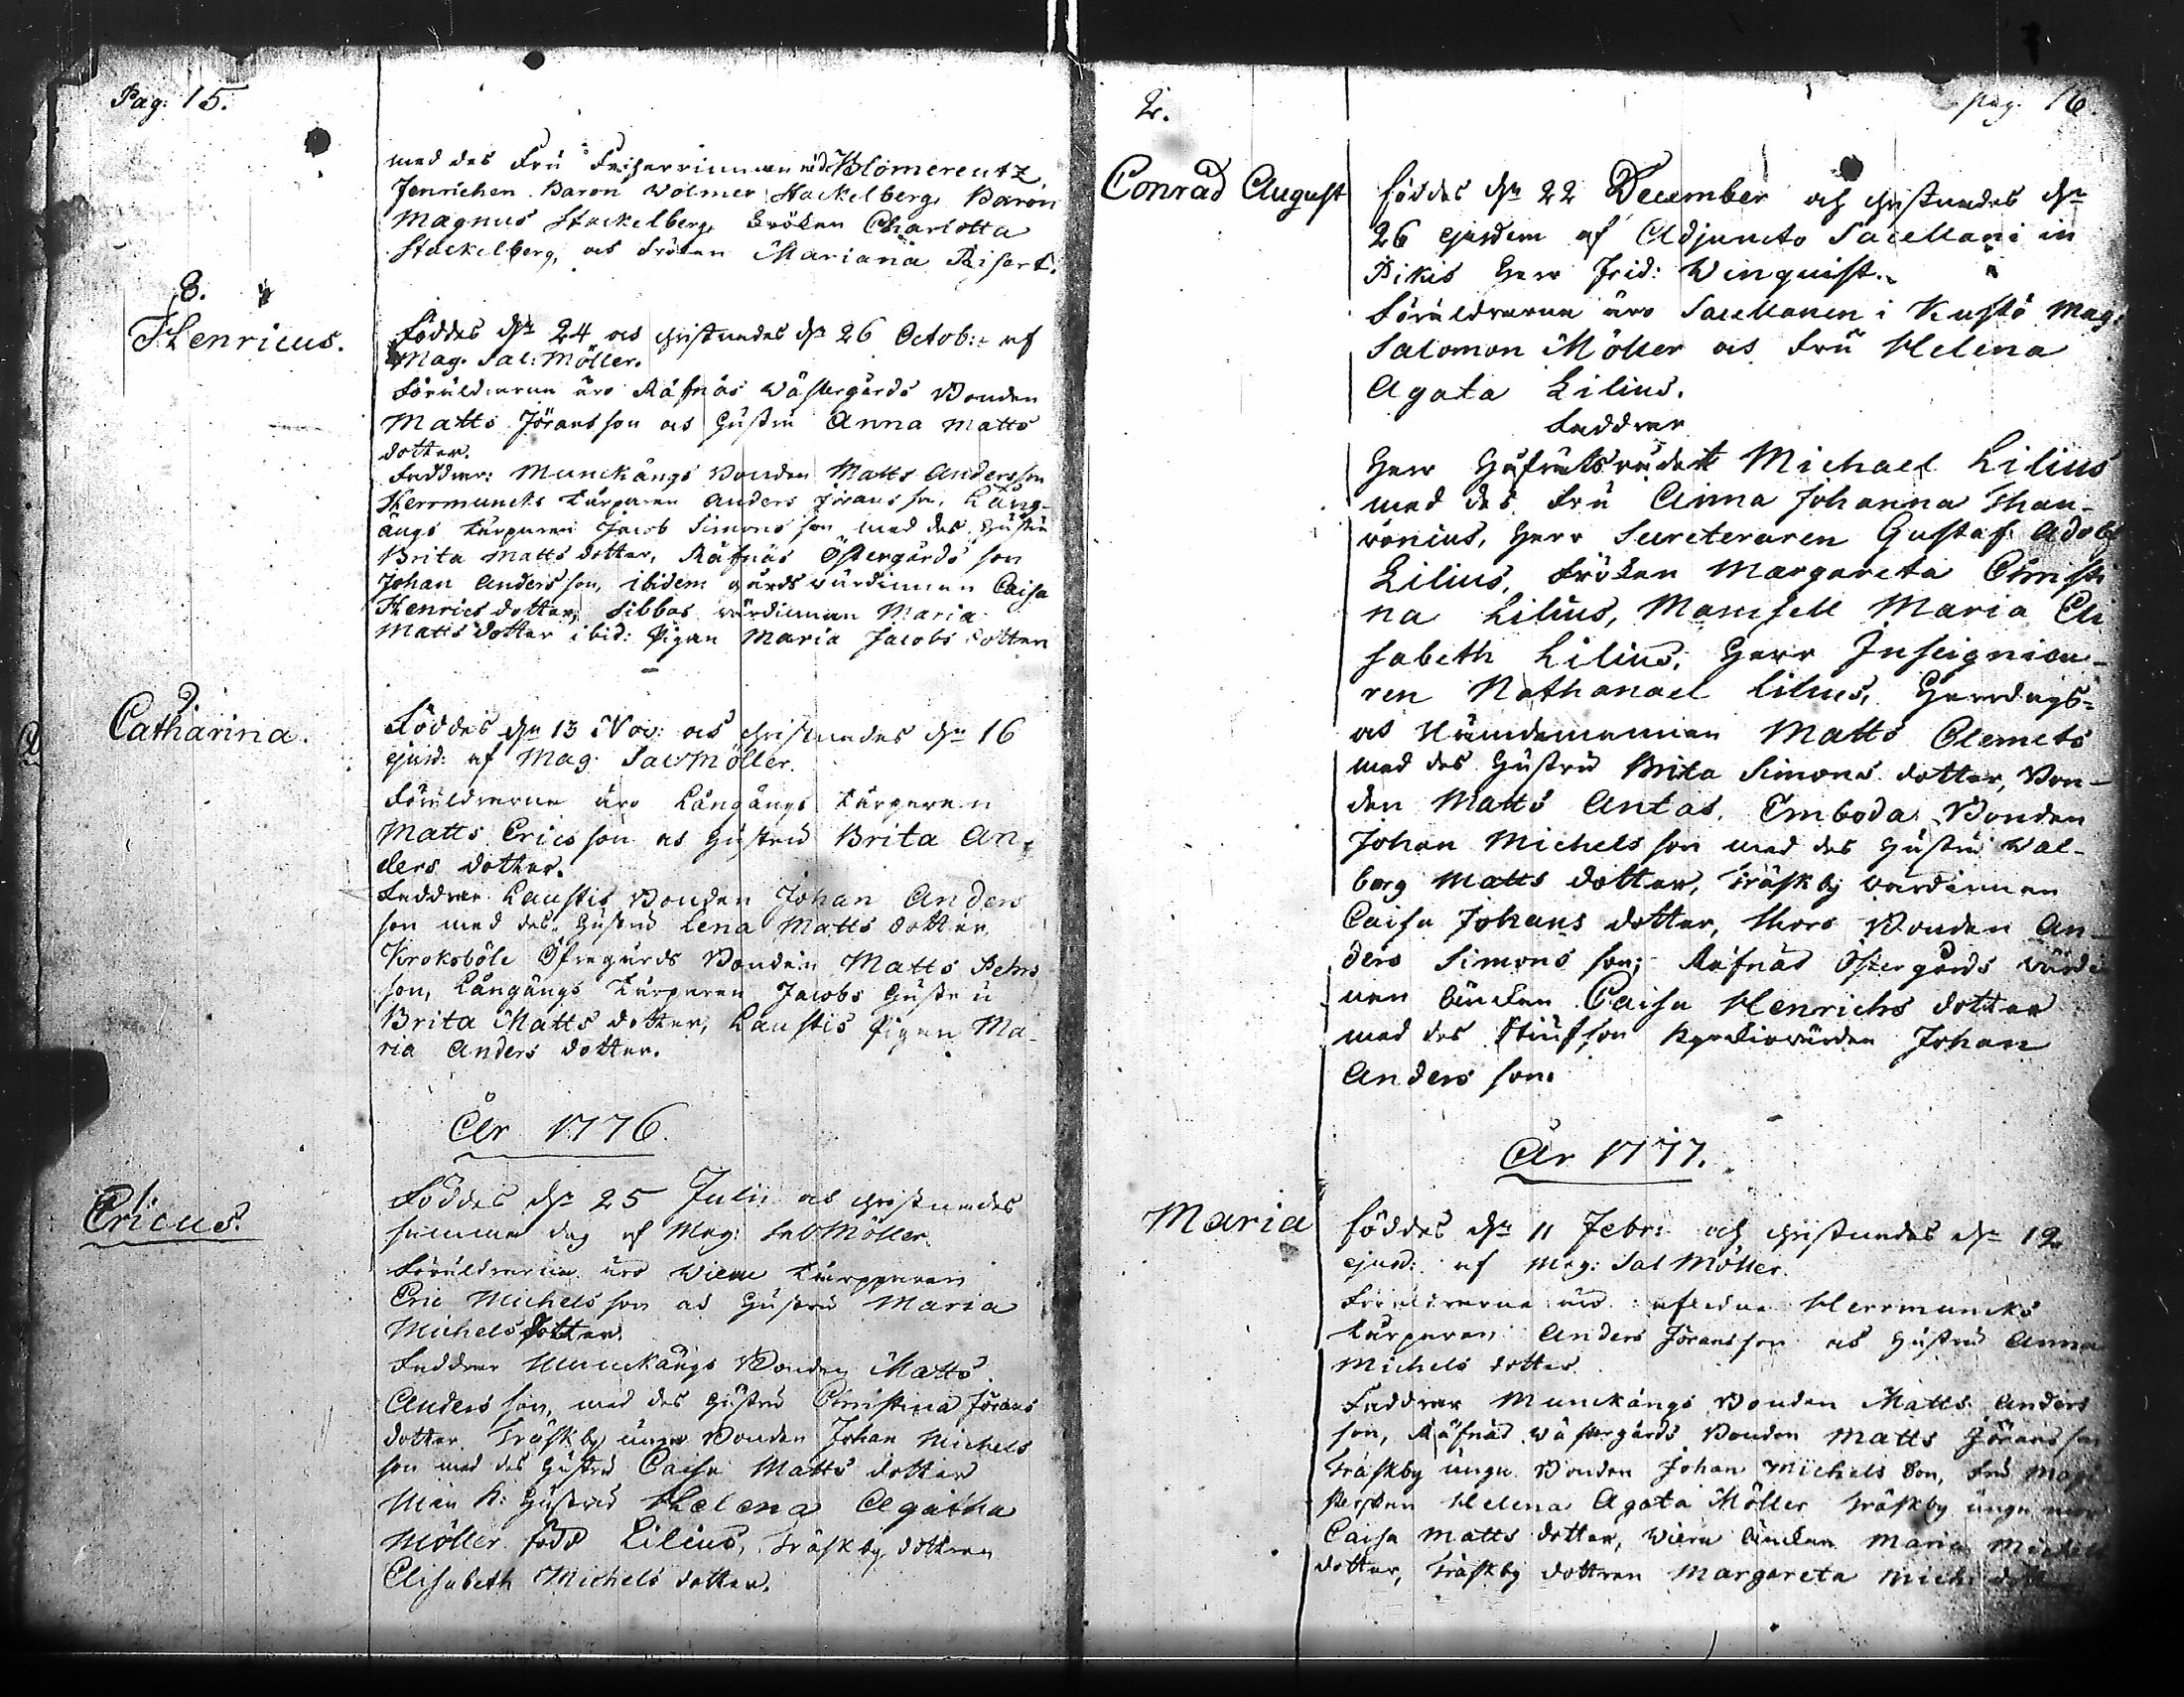 Pag: 15.
med des Fru Friherrinnan Blomcreutz
Jenrichen Baron Wolmer Stackelberg, Baron
Magnus Stackelberg, Fröken Charlotta
Stackelberg, och Fröken Mariana
8.
Henricus.
Föddes d. 24 och christnades d. 26 Octob: af
Mag. Sal: Möller.
Föräldrarne äro Råfnäs Wästergårds Bonden
Matts Jöransson och Hustru Anna Matts
dotter.
Faddrar: Munckängs Bonden Matts Andersson
Herrmuncks Torparen Anders Jöransson, Lång-
ängs Torparen Jacob Simonsson med des Hustru
Brita Matts dotter, Råfnäs Östergårds son
Johan Andersson, ibidem gårds värdinnan Caisa
Henrics dotter, Sibbas värdinnan Maria
Matts dotter ibid: Pigan Maria Jacobs dotter
Catharina.
Föddes d. 13 Nov: och christnades d. 16
ejusd: af Mag. Sal Möller.
Föräldrarne äro Långängs Torparen
Matts Ericsson och Hustru Brita An-
ders dotter.
Faddrar Laustis Bonden Johan Anders
son med des Hustru Lena Matts dotter
Kroksböle Öfvergårds Bonden Matts Pehrs
son, Långängs Torparen Jacobs Hustru
Brita Matts dotter, Laustis Pigan Ma-
ria Anders dotter.
År 1776.
1
Ericus.
Föddes d. 25 Julii och christnades
samma dag af Mag: Sal Möller.
Föräldrarne äro Wiern Torpparen
Eric Michelsson och Hustru Maria
Michels dotter.
Faddrar Munckängs Bonden Matts
Andersson, med des Hustru Christina Jörans
dotter Träskby unga Bonden Johan Michels
son med des Hustru Caisa Matts dotter
Min K: Hustru Helena Agatha
Möller född Lilius, Träskby dottren
Elisabeth Michels dotter.
pag. 16.
2.
Conrad August
föddes d. 22 December och christnades d.
26 ejusdem af Adjuncto Sacellani in
Pikis Herr Frid: Winquist.
Föräldrarne äro Sacellanen i Kustö Mag:
Salomon Möller och Fru Helena
Agata Lilius.
Faddrar
Herr Hofrättsrådet Michael Lilius
med des Fru Anna Johanna Than-
vonius, Herr Secreteraren Gustaf Adolf
Lilius, Fröken Margareta Christi
na Lilius, Mamsell Maria Eli
sabeth Lilius, Herr Inseignieu-
ren Nathanael Lilius, Herredags-
och Nämdemannen Matts Clemets
med des Hustru Brita Simons dotter, Bon-
den Matts Antas, Emboda Bonden
Johan Michelsson med des Hustru Wal-
borg Matts dotter, Träskby värdinnan
Caisa Johans dotter, Mors Bonden An-
ders Simons son; Råfnäs Östergårds värdi
nan änckan Caisa Henrichs dotter
med des Stiufson Johan
Andersson.
År 1777.
Maria
föddes d. 11 Febr: och christnades d. 12
ejusd: af Mag: Sal Möller.
Föräldrarne äro afledne Herrmuncks
Torparen Anders Jöransson och Hustru Anna
Michels dotter.
Faddrar Munckängs Bonden Matts Anders
son, Råfnäs Wästergårds Bonden Matts Jöransson
Träskby unga Bonden Johan Michels son, Fru Magi
sterskan Helena Agata Möller Träskby unga
Caisa Matts dotter, Wiern änckan Maria Michels
dotter, Träskby dottren Margareta Mich: dotter